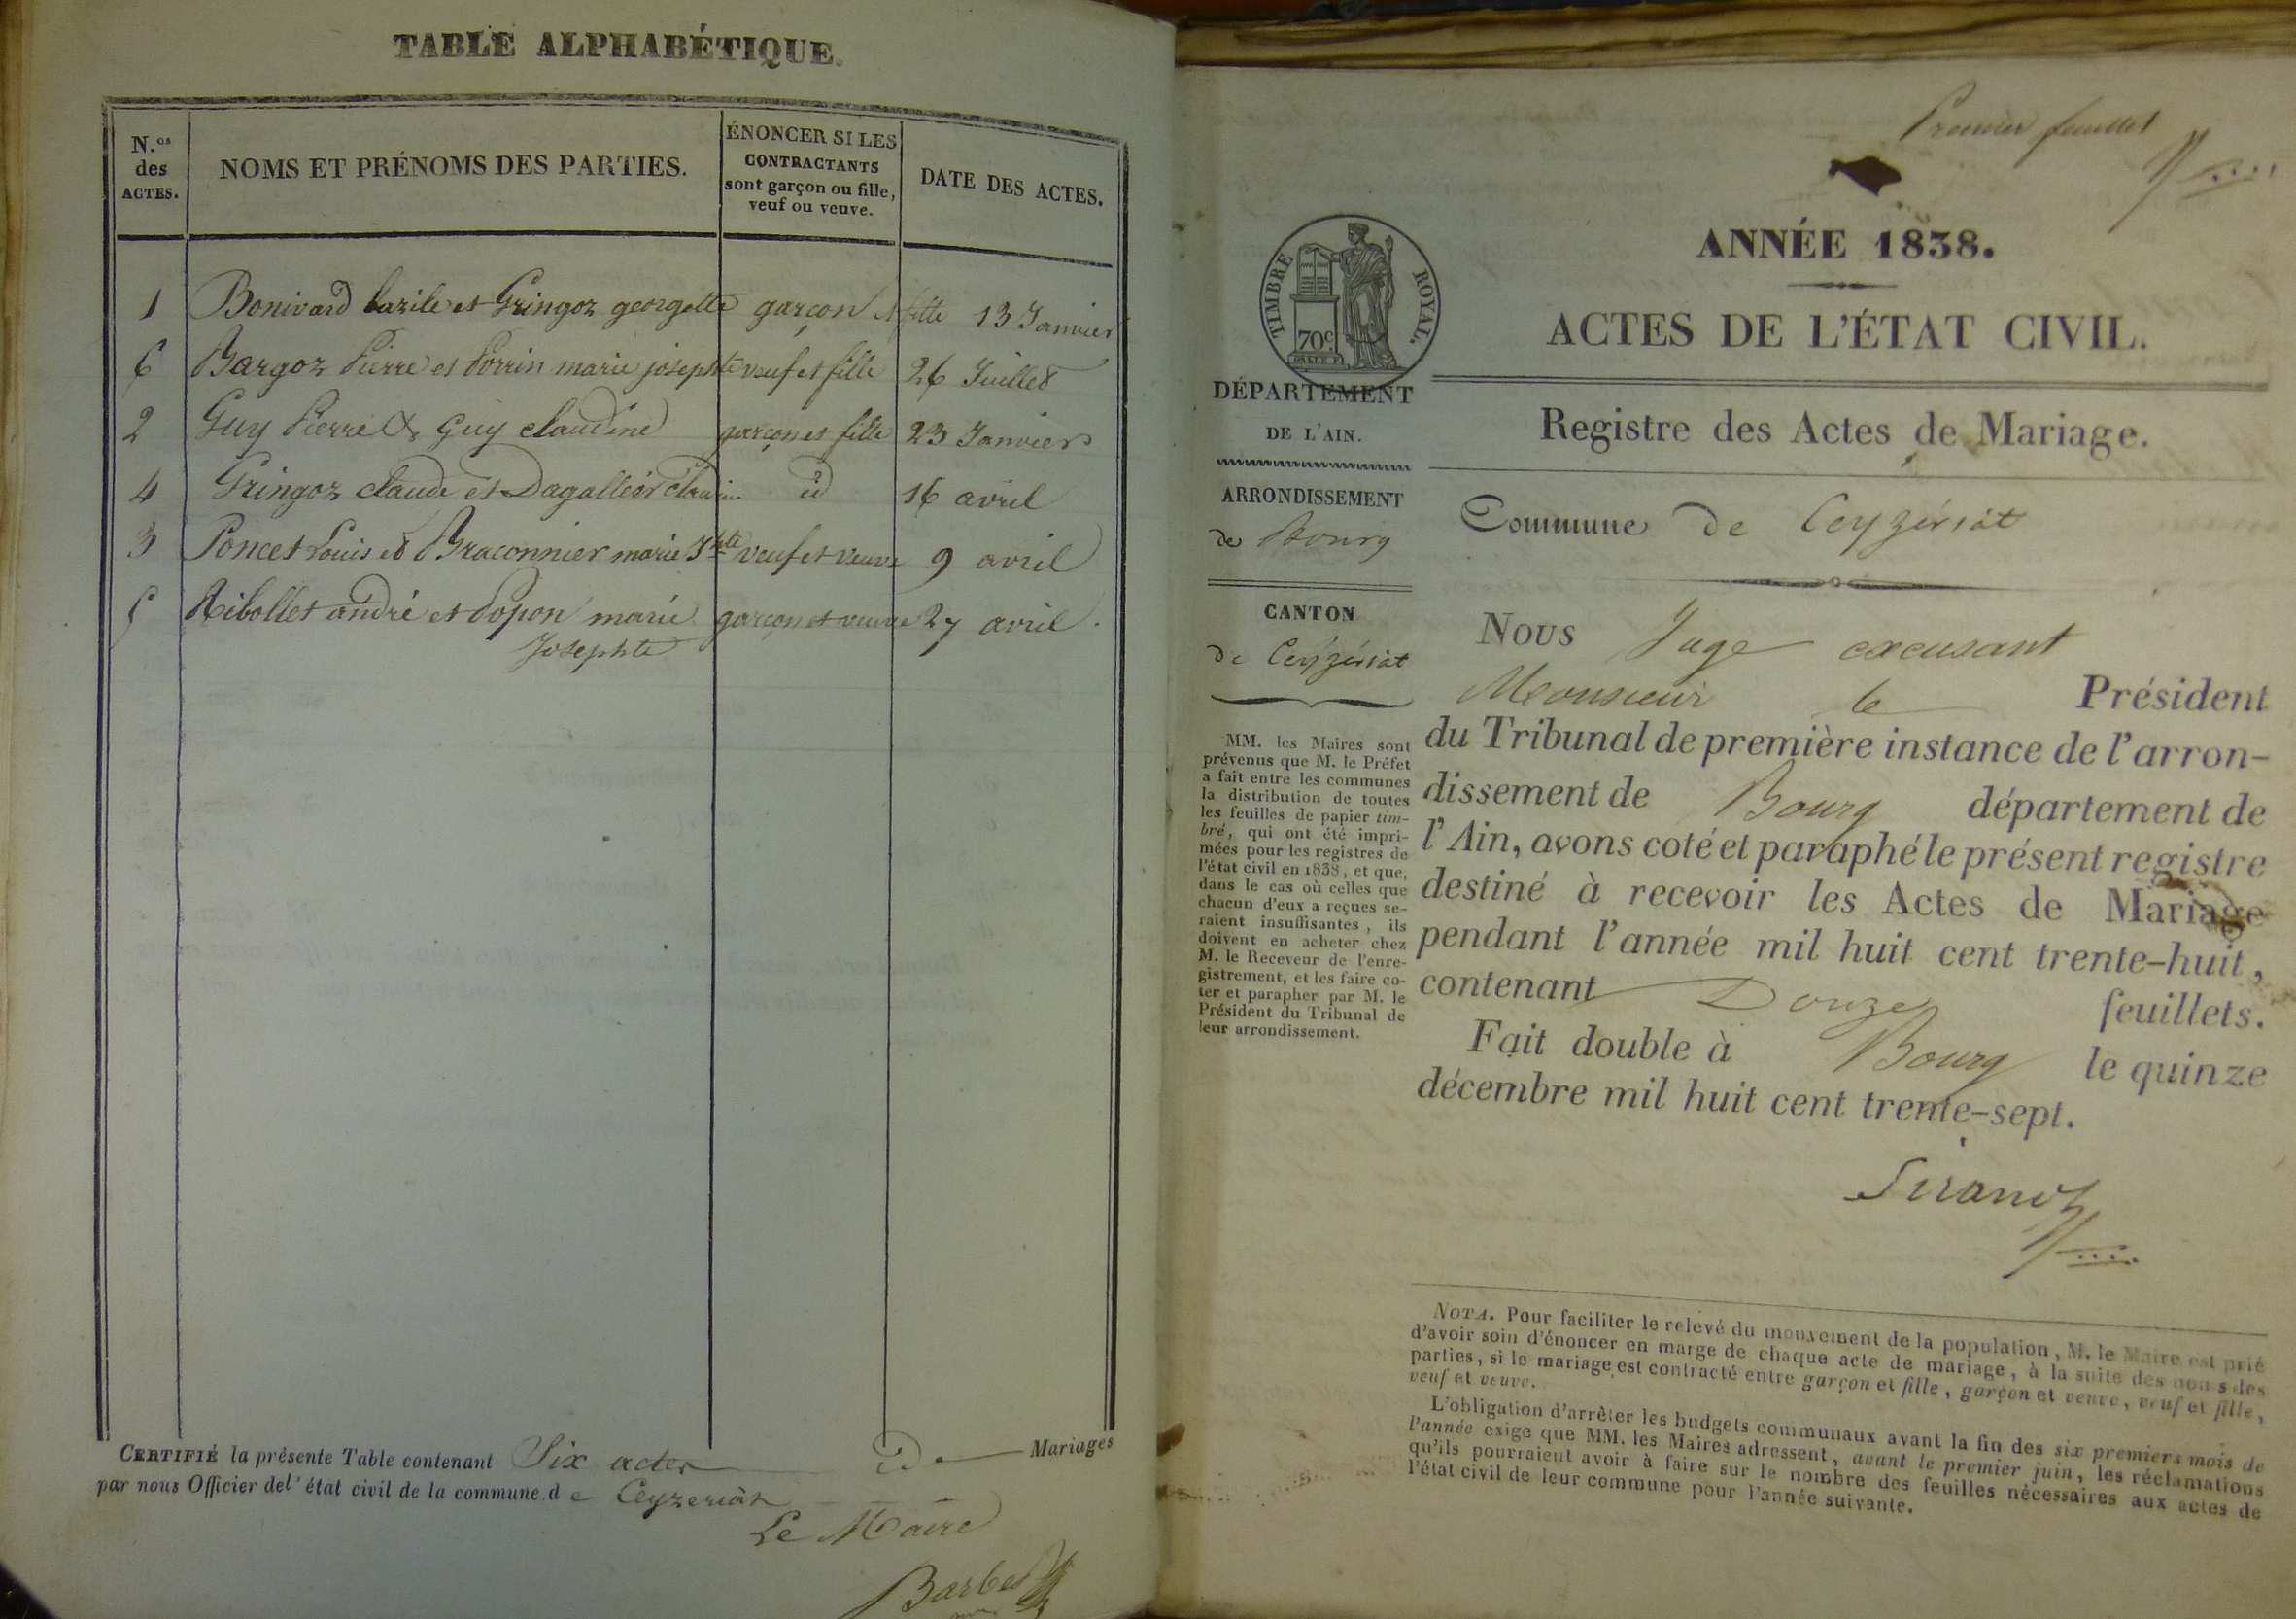 TABLE ALPHABÉTIQUE.
N.os des ACTES.
NOMS ET PRÉNOMS DES PARTIES.
ÉNONCER SI LES
CONTRACTANTS
sont garçon ou fille,
veuf ou veuve.
DATE DES ACTES.
1 Bonivard bazile et Gringoz georgette garçon et fille 13 Janvier
6 Bargoz Pierre et Perrin marie josephte veuf et fille 26 Juillet
2 Guy Pierre & Guy claudine garçon et fille 23 Janvier
4 Gringoz claude et Dagallier claudine id 16 avril
3 Poncet Louis et Braconnier marie Jhte veuf et veuve 9 avril
5 Ribollet andré et Popon marie garçon et veuve 27 avril.
Josephte
CERTIFIÉ la présente Table contenant Six actes de Mariages
par nous Officier del'état civil de la commune de Ceyzeriat
Le Maire
Barbet
Premier feuillet
TIMBRE ROYAL.
70c
ANNÉE 1838.
ACTES DE L'ÉTAT CIVIL.
Registre des Actes de Mariage.
Commune de Ceyzériat
DÉPARTEMENT
DE L'AIN.
ARRONDISSEMENT
de Bourg
CANTON
de Ceyzériat
MM. les Maires sont
prévenus que M. le Préfet
a fait entre les communes
la distribution de toutes
les feuilles de papier tim-
bré, qui ont été impri-
mées pour les registres de
l'état civil en 1838, et que,
dans le cas où celles que
chacun d'eux a reçues se-
raient insuffisantes, ils
doivent en acheter chez
M. le Receveur de l'enre-
gistrement, et les faire co-
ter et parapher par M. le
Président du Tribunal de
leur arrondissement.
NOUS Juge excusant
Monsieur le Président
du Tribunal de première instance de l'arron-
dissement de Bourg département de
l'Ain, avons coté et paraphé le présent registre
destiné à recevoir les Actes de Mariage
pendant l'année mil huit cent trente-huit,
contenant Douze feuillets.
Fait double à Bourg le quinze
décembre mil huit cent trente-sept.
Sirand
NOTA. Pour faciliter le relevé du mouvement de la population, M. le Maire est prié
d'avoir soin d'énoncer en marge de chaque acte de mariage, à la suite des noms des
parties, si le mariage est contracté entre garçon et fille, garçon et veuve, veuf et fille,
veuf et veuve.
L'obligation d'arrêter les budgets communaux avant la fin des six premiers mois de
l'année exige que MM. les Maires adressent, avant le premier juin, les réclamations
qu'ils pourraient avoir à faire sur le nombre des feuilles nécessaires aux actes de
l'état civil de leur commune pour l'année suivante.